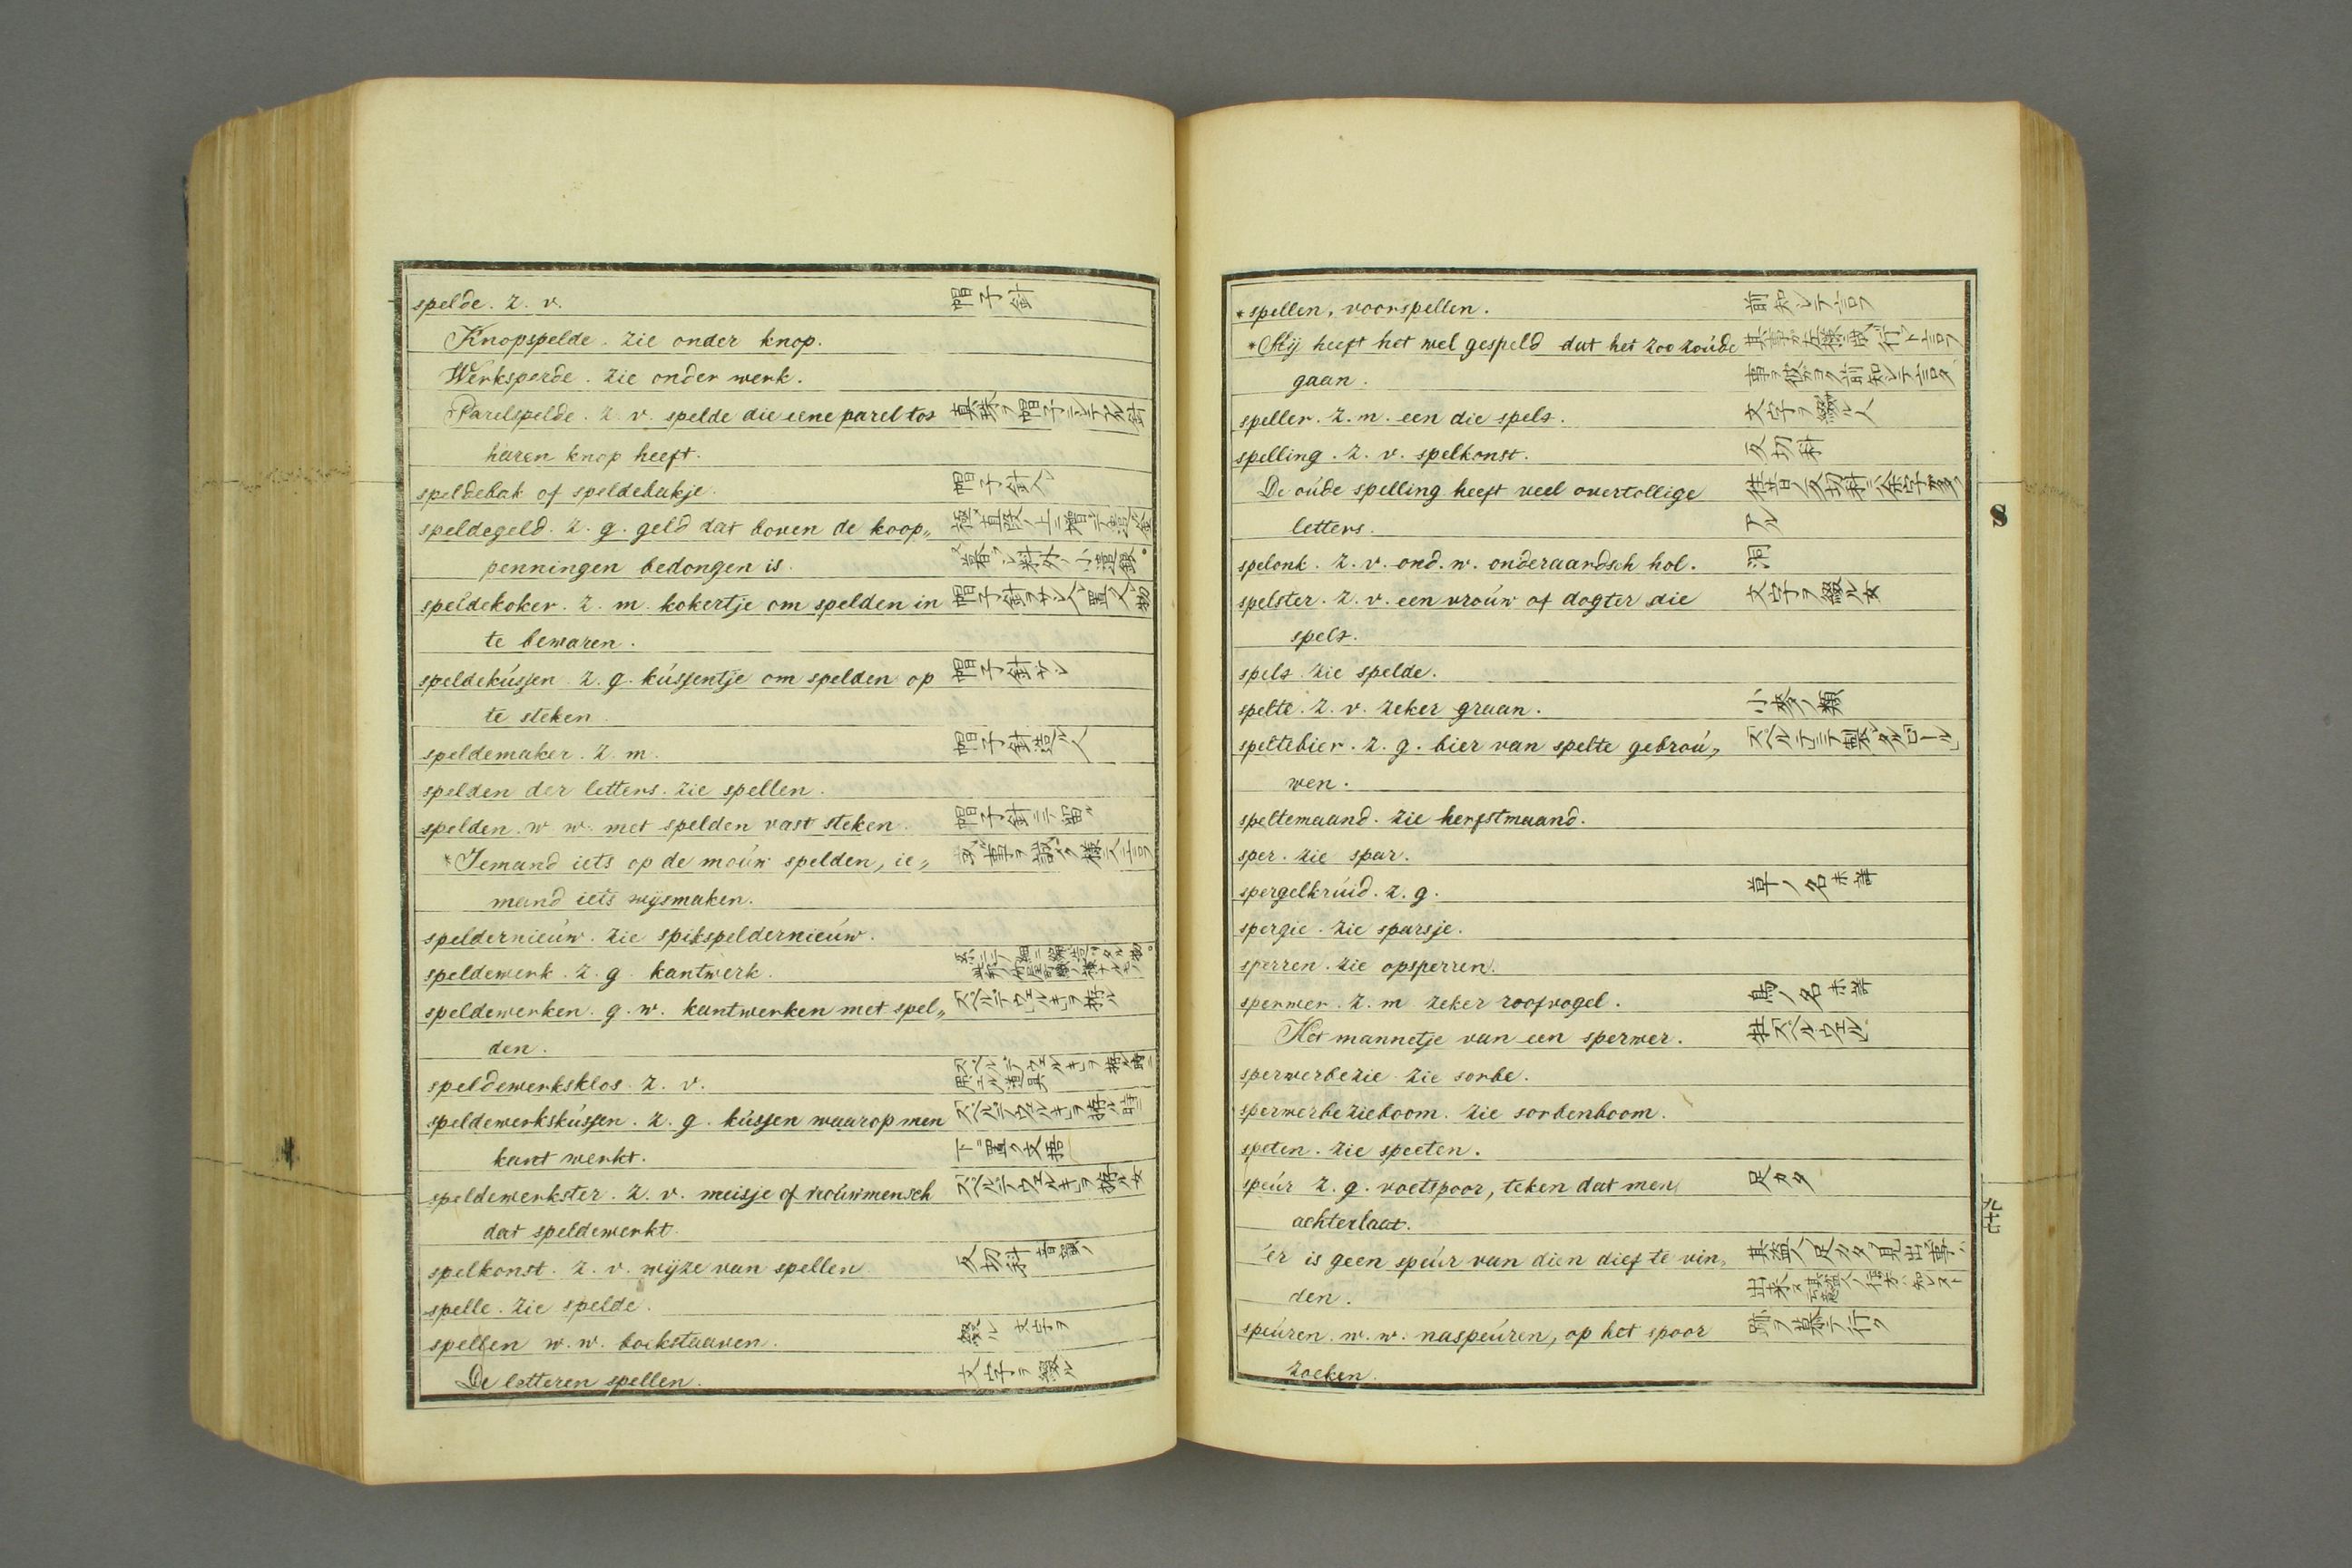 spelde. z. v. 帽子針
Knopspelde. zie onder knop.
Werksperde. zie onder werk.
Parelspelde. z. v. spelde die eene parel tot 真珠ヲ帽子ニシテアル針
haren knop heeft.
speldebak of speldebakje. 帽子針入
speldegeld. z. g. geld dat boven de koop„
penningen bedongen is.
speldekoker. z. m. kokertje om spelden in 帽子針ヲサシ入置ク物
te bewaren.
speldekússen. z. g. kússentje om spelden op 帽子針サシ
te steken
speldemaker. z. m. 帽子針造ル人
spelden der letters. zie spellen.
spelden. w. w. met spelden vast steken. 帽子針ニテ留ル
*Iemand iets op de moúw spelden, ie„
mand iets wijsmaken.
speldernieúw. zie spikspeldernieúw.
speldewerk. z. g. kantwerk.
speldewerken. g. w. kantwerken met spel„ スペルデウェルキヲ拵ル
den.
speldewerksklos. z. v. スペルデウェルキヲ拵ル時ニ用ユル道具
speldewerkskússen. z. g. kússen waarop men スペルデウェルキヲ拵ル時
kant werkt. 下ニ置ク支
speldewerkster. z. v. meisje of vroúwmensch スペルデウェルキヲ拵ル女
dat speldewerkt.
spelkonst. z. v. wijze van spellen 反切科
spelle. zie spelde.
spellen w. w. boekstaaven. 文字ヲ綴ル
De letteren spellen. 文字ヲ綴ル
*spellen, voorspellen. 前知シテ言フ
*Hij heeft het wel gespeld dat het zoo zoúde
gaan.
speller. z. m. een die spelt. 文字ヲ綴ル人
spelling. z. v. spelkonst. 反切科
De oúde spelling heeft veel overtollige 往昔ノ反切科ニハ余字多ク
letters. アル
spelonk. z. v. ond. w. onderaardsch hol. 洞
spelster. z. v. een vroúw of dogter die 文字ヲ綴ル女
spelt.
spelt. zie spelde.
spelte. z. v. zeker graan. 小麥ノ類
speltebier. z. g. bier van spelte gebroú„ スペルテニテ製シタルビール
wen.
speltemaand. zie herfstmaand.
sper. zie spar.
spergelkrúid. z. g. 草ノ名未詳
spergie. zie sparsje.
sperren. zie opsperren.
sperwer. z. m zeker roofvogel. 鳥ノ名未詳
Het mannetje van een sperwer. 牡スペルウェル
sperwerbezie zie sorbe.
sperwerbezieboom. zie sorbenboom.
speten. zie speeten.
speúr z. g. voetspoor, teken dat men 足カタ
achterlaat.
'er is geen speúr van dien dief te vin„ 其盗人ノ足カタヲ見出ス事ハ
den. 出来ヌ
speúren. w. w. naspeúren, op het spoor 跡ヲ慕テ行ク
zoeken.
S
九十七